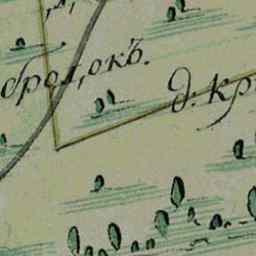 бродокъ.
д. кр